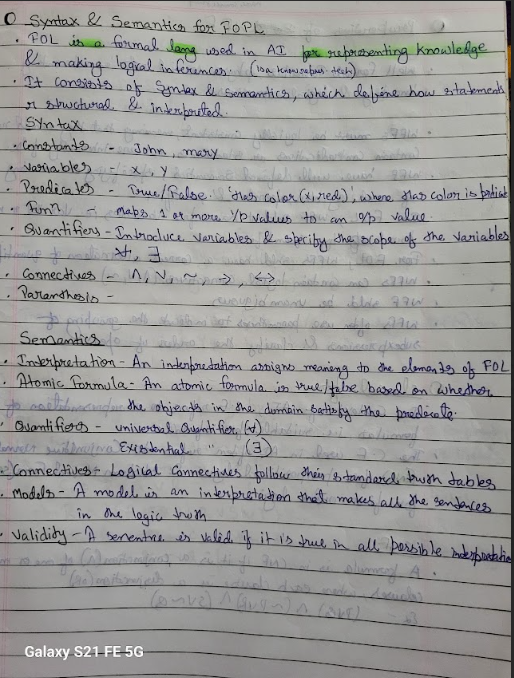 O Syntax & Semantics for FOPL
• FOL is a formal lang used in AI for representing knowledge
& making logical inferences. (is a know repsn tech)
• It consists of Syntax & semantics, which define how statements
r structural & interpreted.
Syntax
• Constants - John, mary
• Variables - x, y
• Predicates - True/False. 'Has color(x, red)', where Has color is
• Funⁿ - maps 1 or more i/p values to an o/p value.
• Quantifiers - Introduce variables & specify the scope of the variables
∀, ∃
• Connectives - ∧, ∨, ~, →, ↔
• Paranthesis -
Semantics
• Interpretation - An interpretation assigns meaning to the elements of FOL
• Atomic Formula - An atomic formula is true/false based on whether
the objects in the domain satisfy the predecate.
• Quantifiers - universal Quantifier (∀)
Existential (∃)
• Connectives - Logical Connectives follow their standard truth tables
• Models - A model is an interpretation that makes all the sentences
in the logic truth
• Validity - A sentence is valid if it is true in all possible interpretatio
Galaxy S21 FE 5G